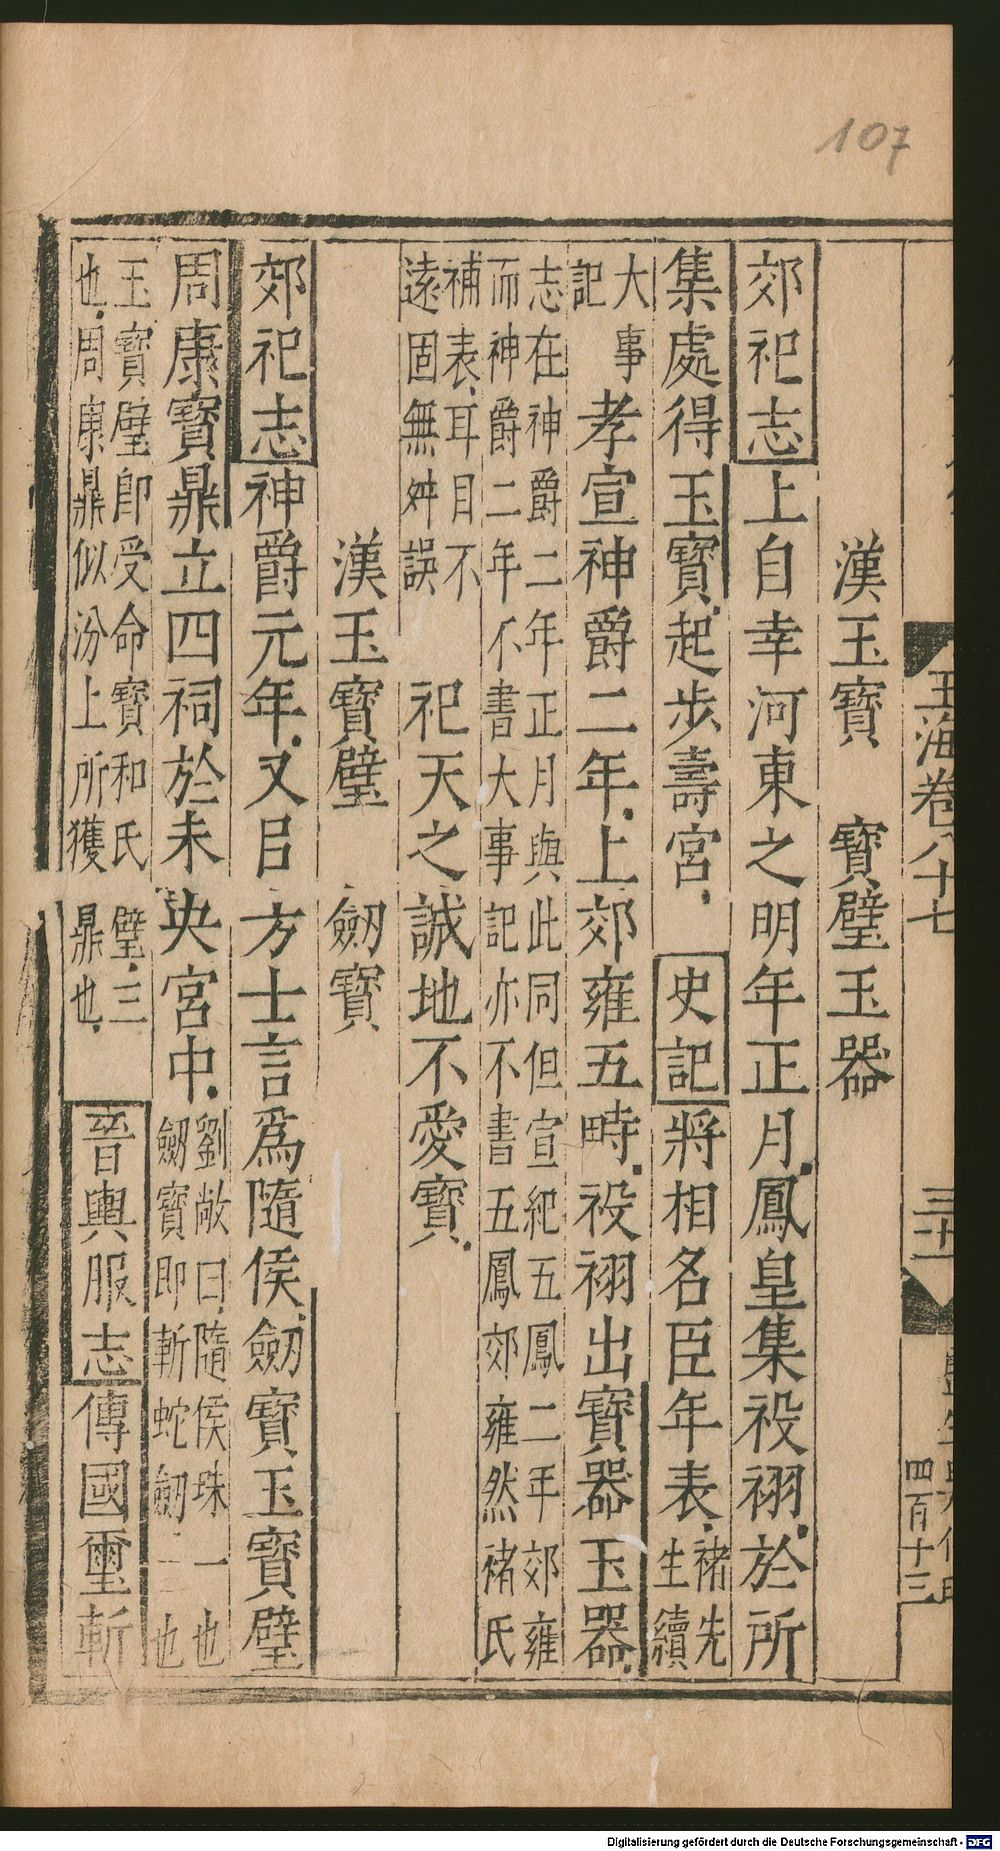 107
玉海卷八十七
三十一
四百十三
漢玉寶　寶璧玉器
郊祀志上自幸河東之明年正月鳳皇集祋祤於所
集處得玉寶起步壽宮史記將相名臣年表褚先
生續
大事
記孝宣神爵二年上郊雍五畤祋祤出寶器玉器
志在神爵二年正月與此同但宣紀五鳳二年郊雍
而神爵二年不書大事記亦不書五鳳郊雍然褚氏
補表耳目不
遠固無舛誤祀天之誠地不愛寶
漢玉寶璧　劒寶
郊祀志神爵元年又㠯方士言爲隨侯劒寶玉寶璧
周康寶鼎立四祠於未央宮中劉敞曰隨侯珠一也
劒寶即斬蛇劒二也
玉寶璧即受命寶和氏璧三
也周康鼎似汾上所獲鼎也晉輿服志傳國璽斬
Digitalisierung gefördert durch die Deutsche Forschungsgemeinschaft - DFG